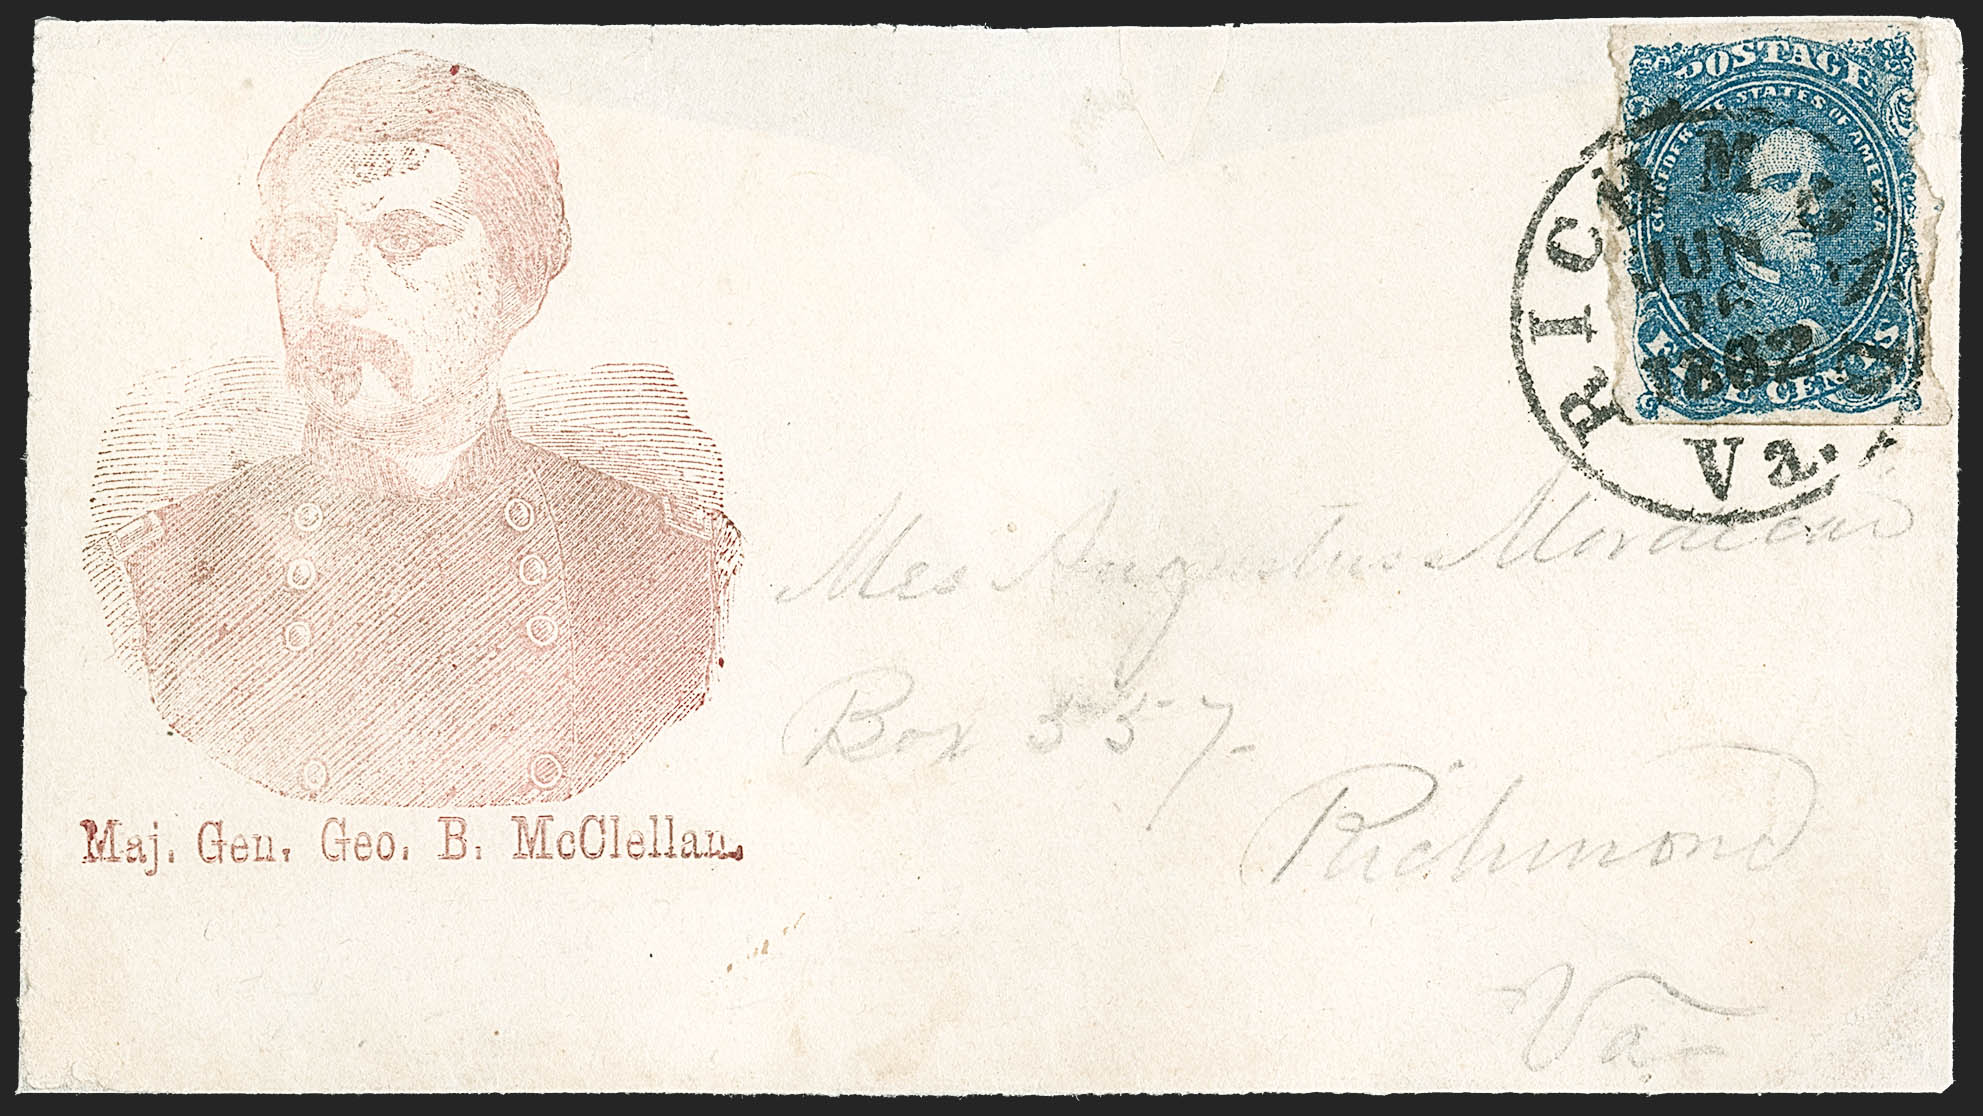 POSTAGE
CONFEDERATE STATES OF AMERICA
FIVE CENTS
RICHMOND
JUN
16
1862
Va.
Mrs Augustus Mordecai
Box 557-
Richmond
Va-
Maj. Gen. Geo. B. McClellan.